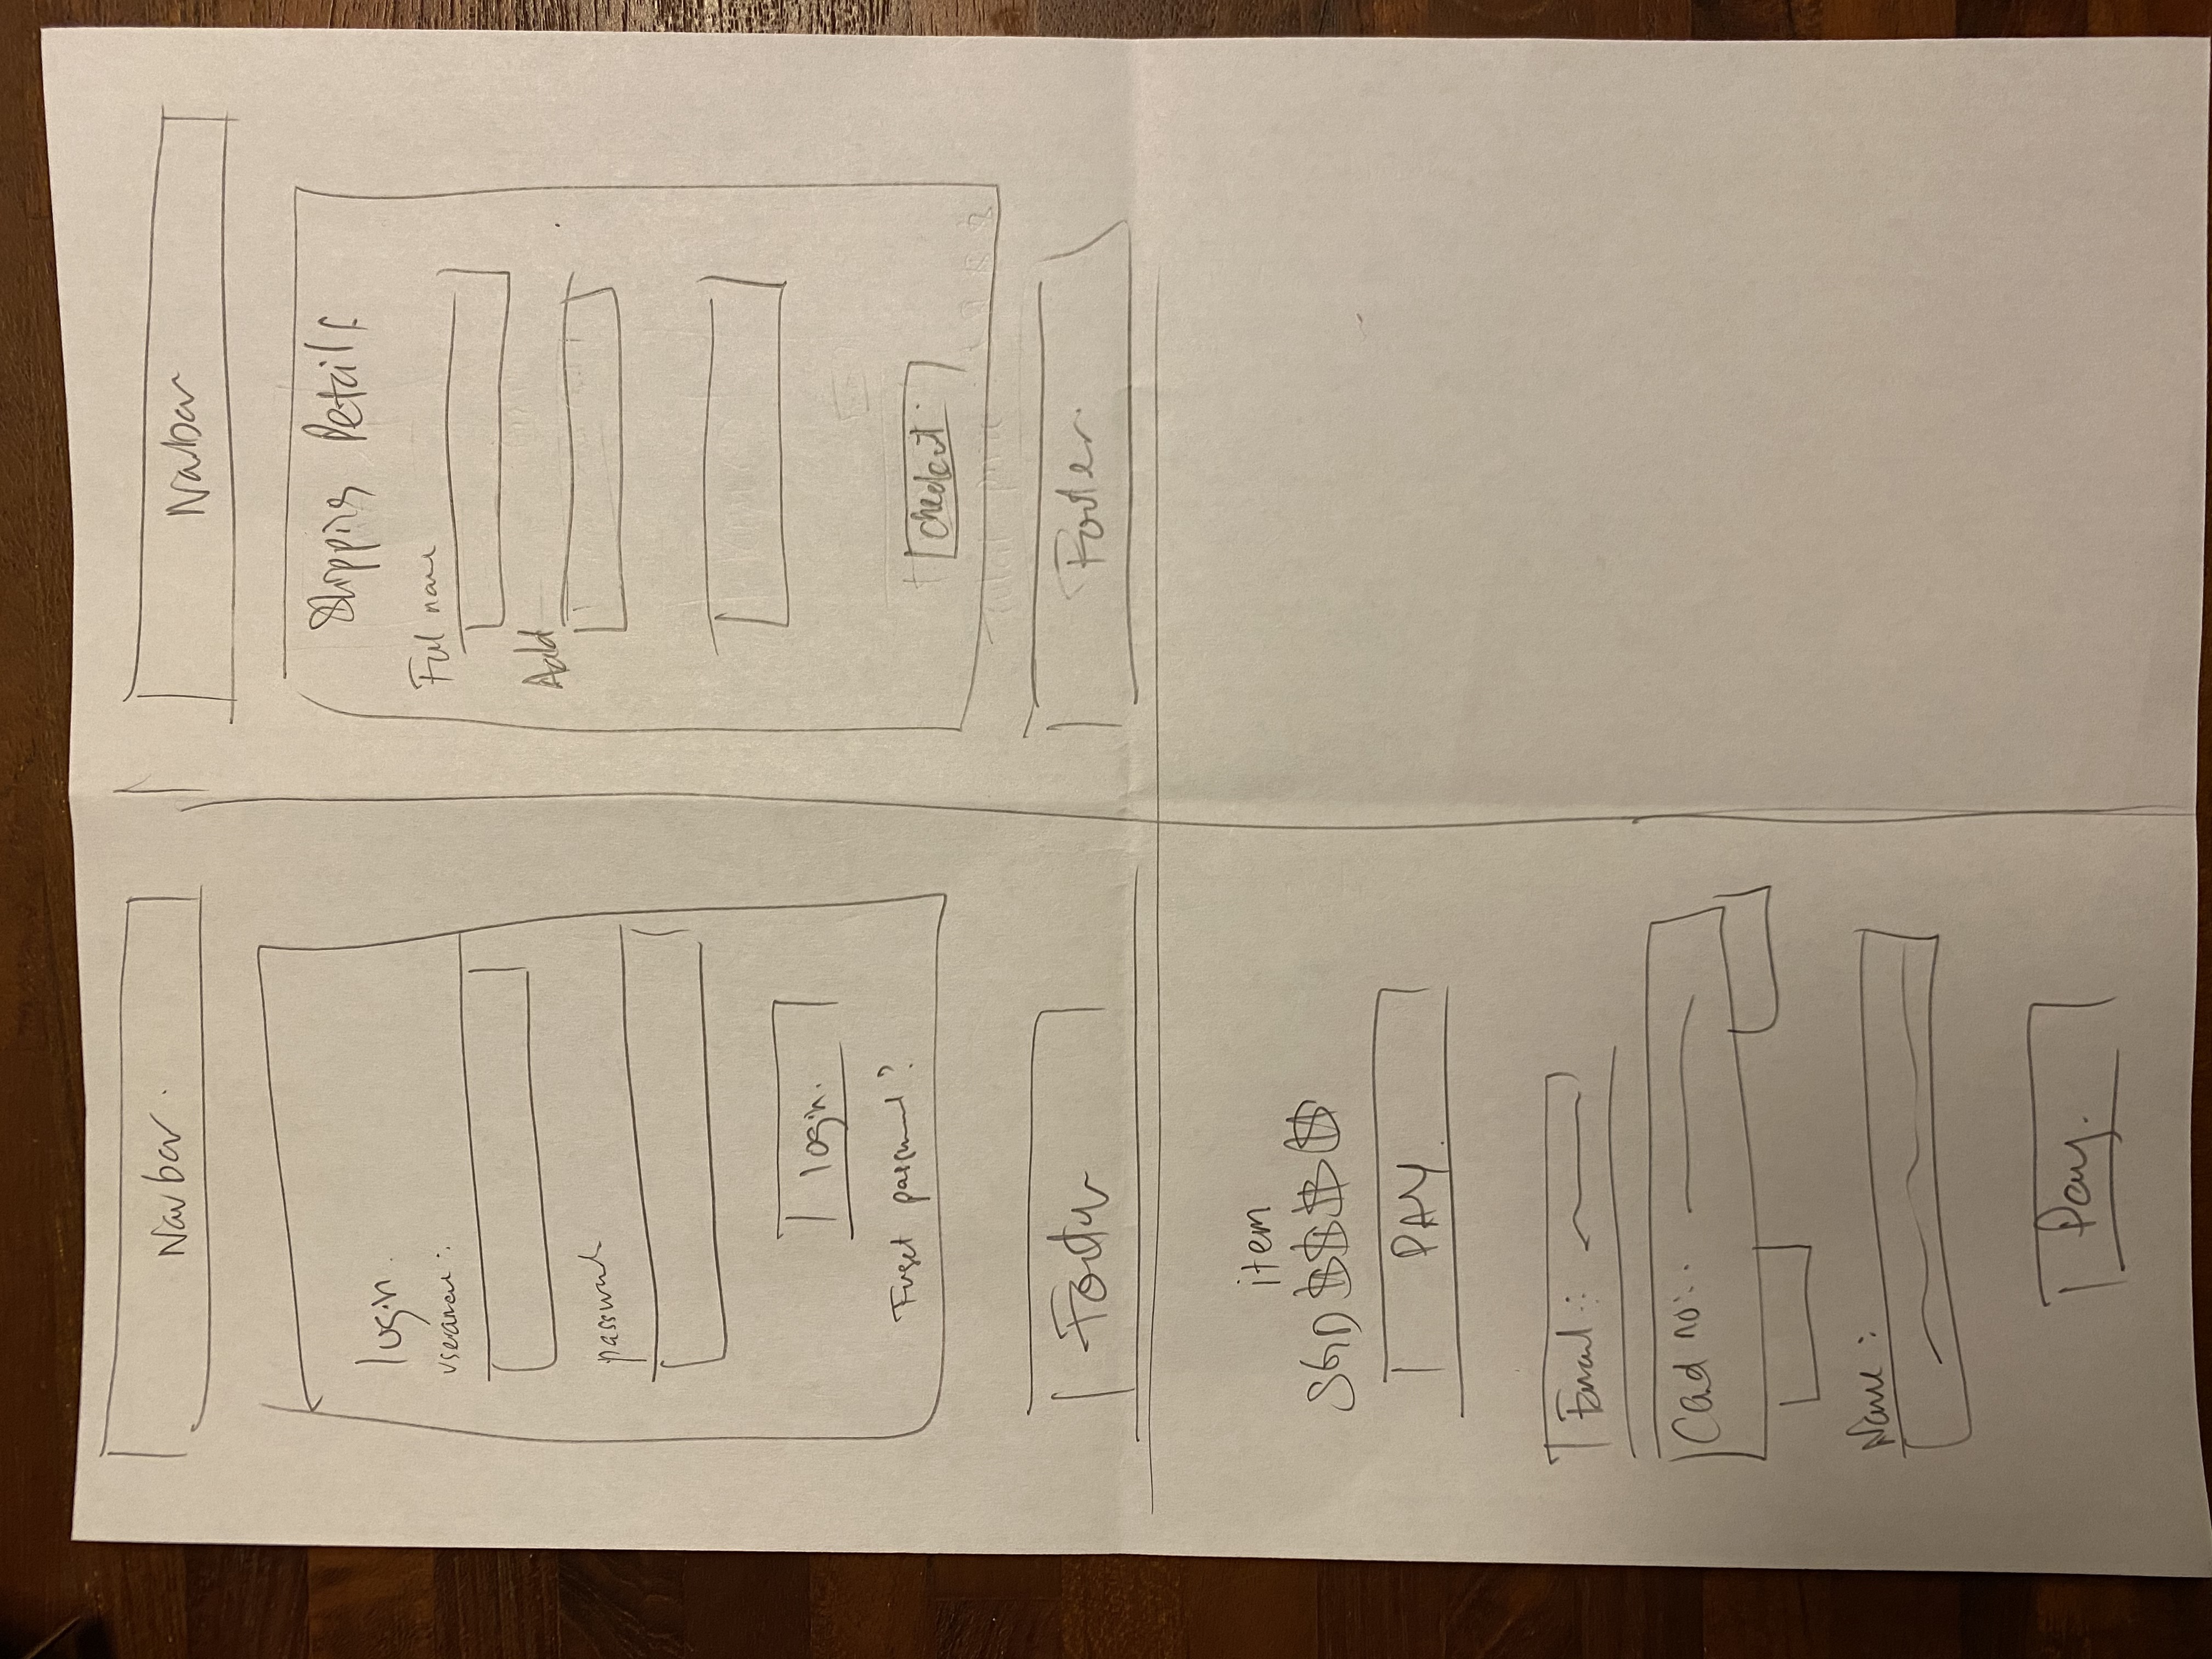 Navbar.
login.
username :
password
login.
Forget password?
Footer
Navbar
Shipping Details
Full name
Add
checkout
Footer.
item
SGD $$$$
PAY.
Email :
Card no:
Name :
Pay.